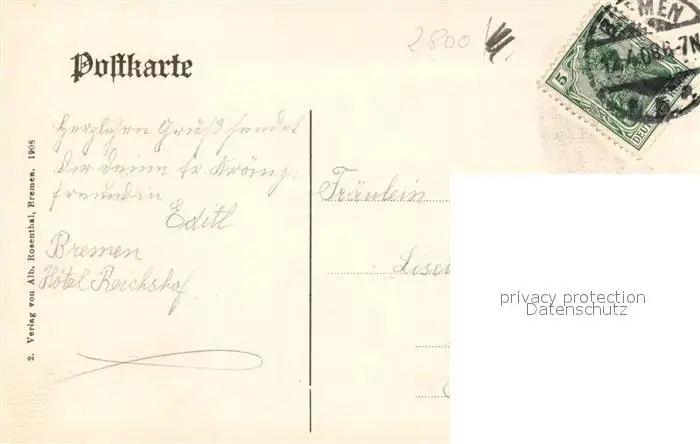 2800
BREMEN
12.4.08 6-7N
5
DEUTSCHES REICH
Postkarte
Herzlichen Gruß sendet
Dir deine Kränz:
freundin
Edith
Bremen
Hôtel Reichshof
2. Verlag von Alb. Rosenthal, Bremen. 1908
Fräulein
privacy protection
Datenschutz